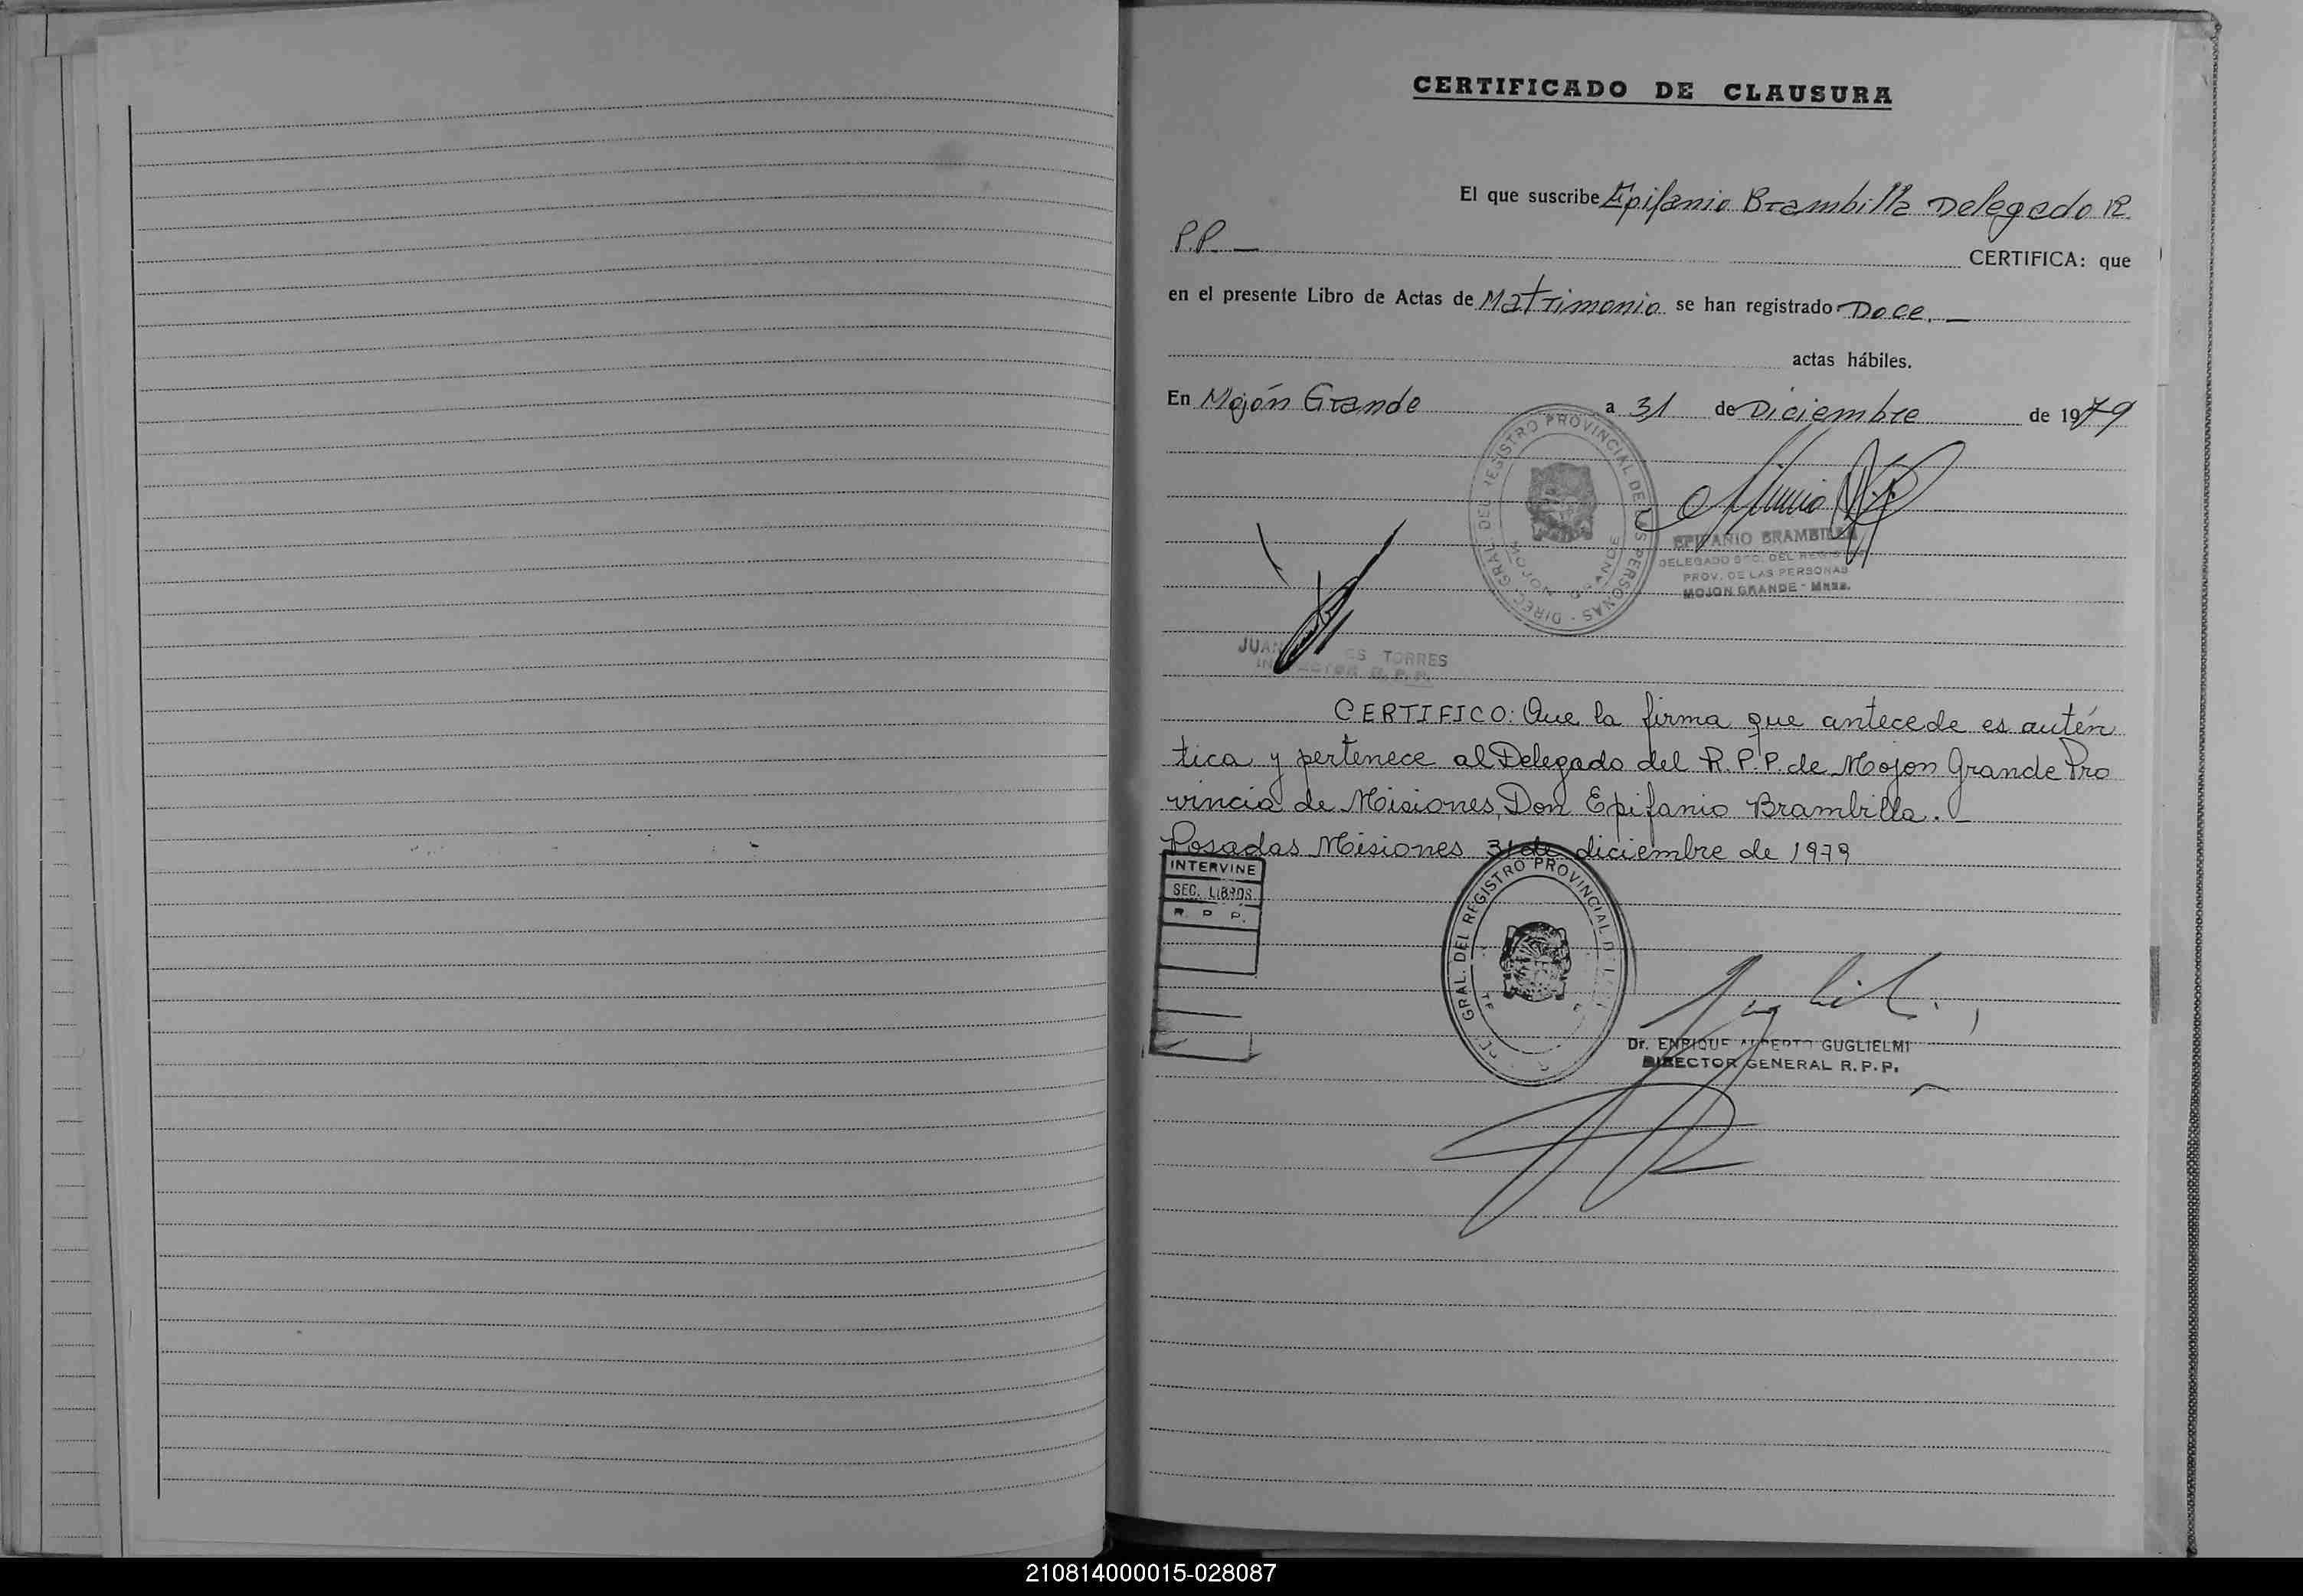 CERTIFICADO DE CLAUSURA
El que suscribe Epifanio Brambilla Delegado R.
P.P. — CERTIFICA: que
en el presente Libro de Actas de Matrimonio se han registrado Doce. —
actas hábiles.
En Mojón Grande a 31 de Diciembre de 1979
DIREC. GRAL. DEL REGISTRO PROVINCIAL DE LAS PERSONAS -
MOJON GRANDE
EPIFANIO BRAMBILLA
DELEGADO DEL REGIS
PROV. DE LAS PERSONAS
MOJON GRANDE - Mnes.
JUAN TORRES
INSPECTOR R.P.P.
CERTIFICO: Que la firma que antecede es autén
tica y pertenece al Delegado del R.P.P. de Mojon Grande Pro
vincia de Misiones, Don Epifanio Brambilla. —
Posadas Misiones 31 de diciembre de 1979
INTERVINE
SEC. LIBROS
R. P. P.
GRAL. DEL REGISTRO PROVINCIAL
Dr. ENRIQUE ALBERTO GUGLIELMI
DIRECTOR GENERAL R.P.P.
210814000015-028087